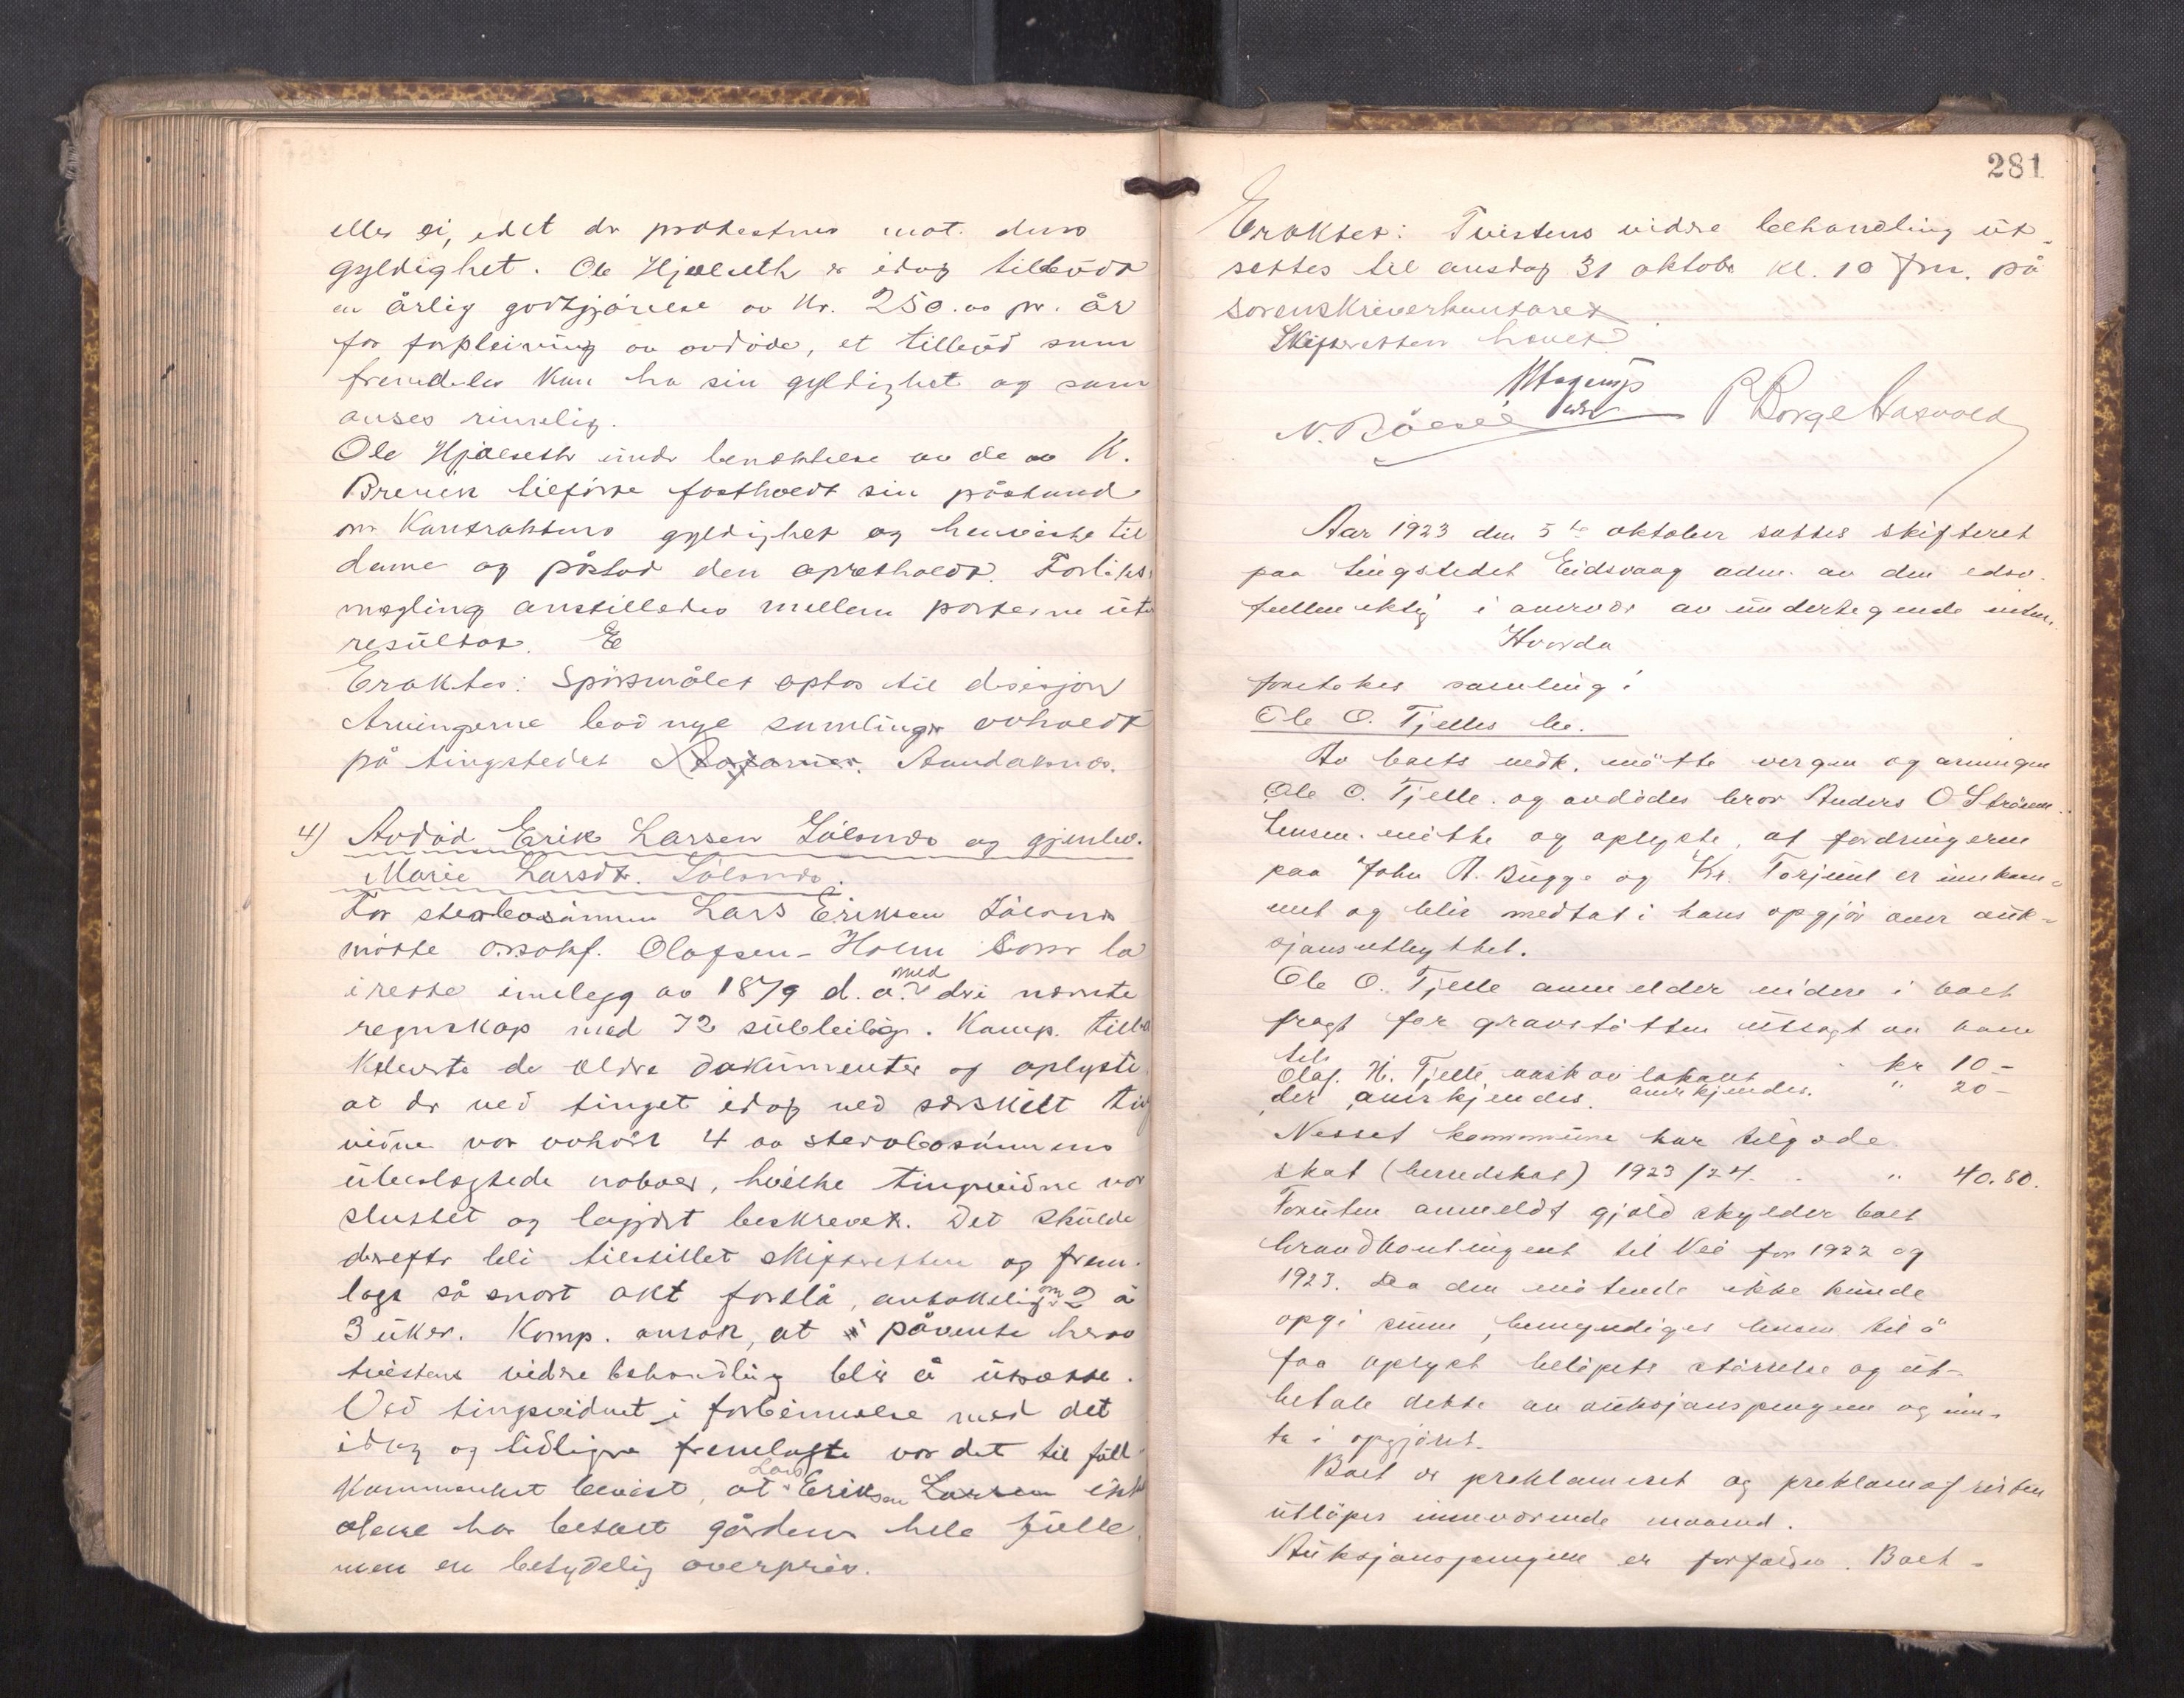 eller ei, idet der protesteres mot dens
gyldighet. Ole Hjælseth er idag tilbudt
en årlig godtgjørelse av Kr. 250.00 pr. år
for forpleining av avdøde, et tilbud som
fremdeles kan ha sin gyldighet og som
anses rimelig.
Ole Hjælseth under benektelse av de av K.
Brevik tilførte fastholdt sin påstand
om Kontraktens gyldighet og henviste til
denne og påstod den opretholdt. Forliks
megling anstilledes mellem parterne uten
resultat. E
Eraktet: Spørsmålet optas til decisjon
Arvingerne bad nye samlinger avholdt
på tingstedet Aandalsnes.
4) Avdød Erik Larsen Sølsnes og gjenlev.
Marie Larsdt. Sølsnes.
For sterbosønnen Lars Eriksen Sølsnes
møtte o.r.sakf. Olafsen-Holm som la
i rette innlegg av 1879 d. a. med deri nevnte
regnskap med 72 subbilag. Komp. tilba
keleverte de eldre dokumenter og oplyste
at der ved tinget idag ved særskilt ting
vidne var avhørt 4 av sterbosønnens
uberygtede naboer, hvilke tingvidne var
sluttet og begjært beskrevet. Det skulde
derefter bli tilstillet skifteretten og frem
lagt så snart akt forelå, antakelig om 2 à
3 uker. Komp. ansøk, at i påvente herav
tvistens videre behandling blir å utsette.
Ved tingsvidnet i forbindelse med det
idag og tidligere fremlagte var det til full
kommenhet bevist, at Lars Eriksen Larsen ikke
alene har betalt gårdens hele fulle,
men en betydelig overpris.
281
Eraktet: Tvistens videre behandling ut-
settes til onsdag 31 oktober kl. 10 fm. på
sorenskriverkontoret
Skifteretten hevet
P. Borge Hasvold
Aar 1923 den 5te oktober sattes skifteret
paa tingstedet Eidsvaag adm. av den edsv.
fuldmektig i overvær av undertegnede vidner.
Hvorda
foretokes samling i
Ole O. Tjelles bo.
Av boets vedk. møtte vergen og arvingen
Ole O. Tjelle. og avdødes bror Anders O Strøm.
Lensm. møtte og oplyste, at fordringerne
paa John A. Bugge og Kr. Torjul er innkom-
met og blir medtat i hans opgjør over auk-
sjonsutbyttet.
Ole O. Tjelle anmelder videre i boet
fragt for gravstøtten utlagt av ham
selv kr 10 –
Olaf. H. Tjelle vask av lokalet " 20 –
der anerkjendes. anerkjendes.
Nesset kommune har tilgode
skat (herredskat) 1923/24. . " 40.80.
Foruten anmeldt gjæld skylder boet
brandkontingent til Veø for 1922 og
1923. Da den møtende ikke kunde
opgi sum, bemyndiges lensm. til å
faa oplyst beløpets størrelse og ut-
betale dette av auksjonspengene og inn-
ta i opgjøret.
Boet er proklameret og proklamafristen
utløper inneværende maaned.
Auksjonspengene er forfaldne. Boet –